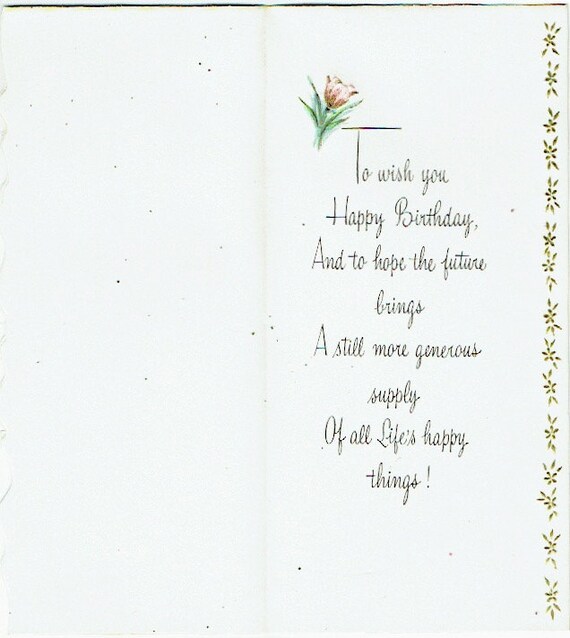 To wish you
Happy Birthday,
And to hope the future
brings
A still more generous
supply
Of all Life's happy
things!